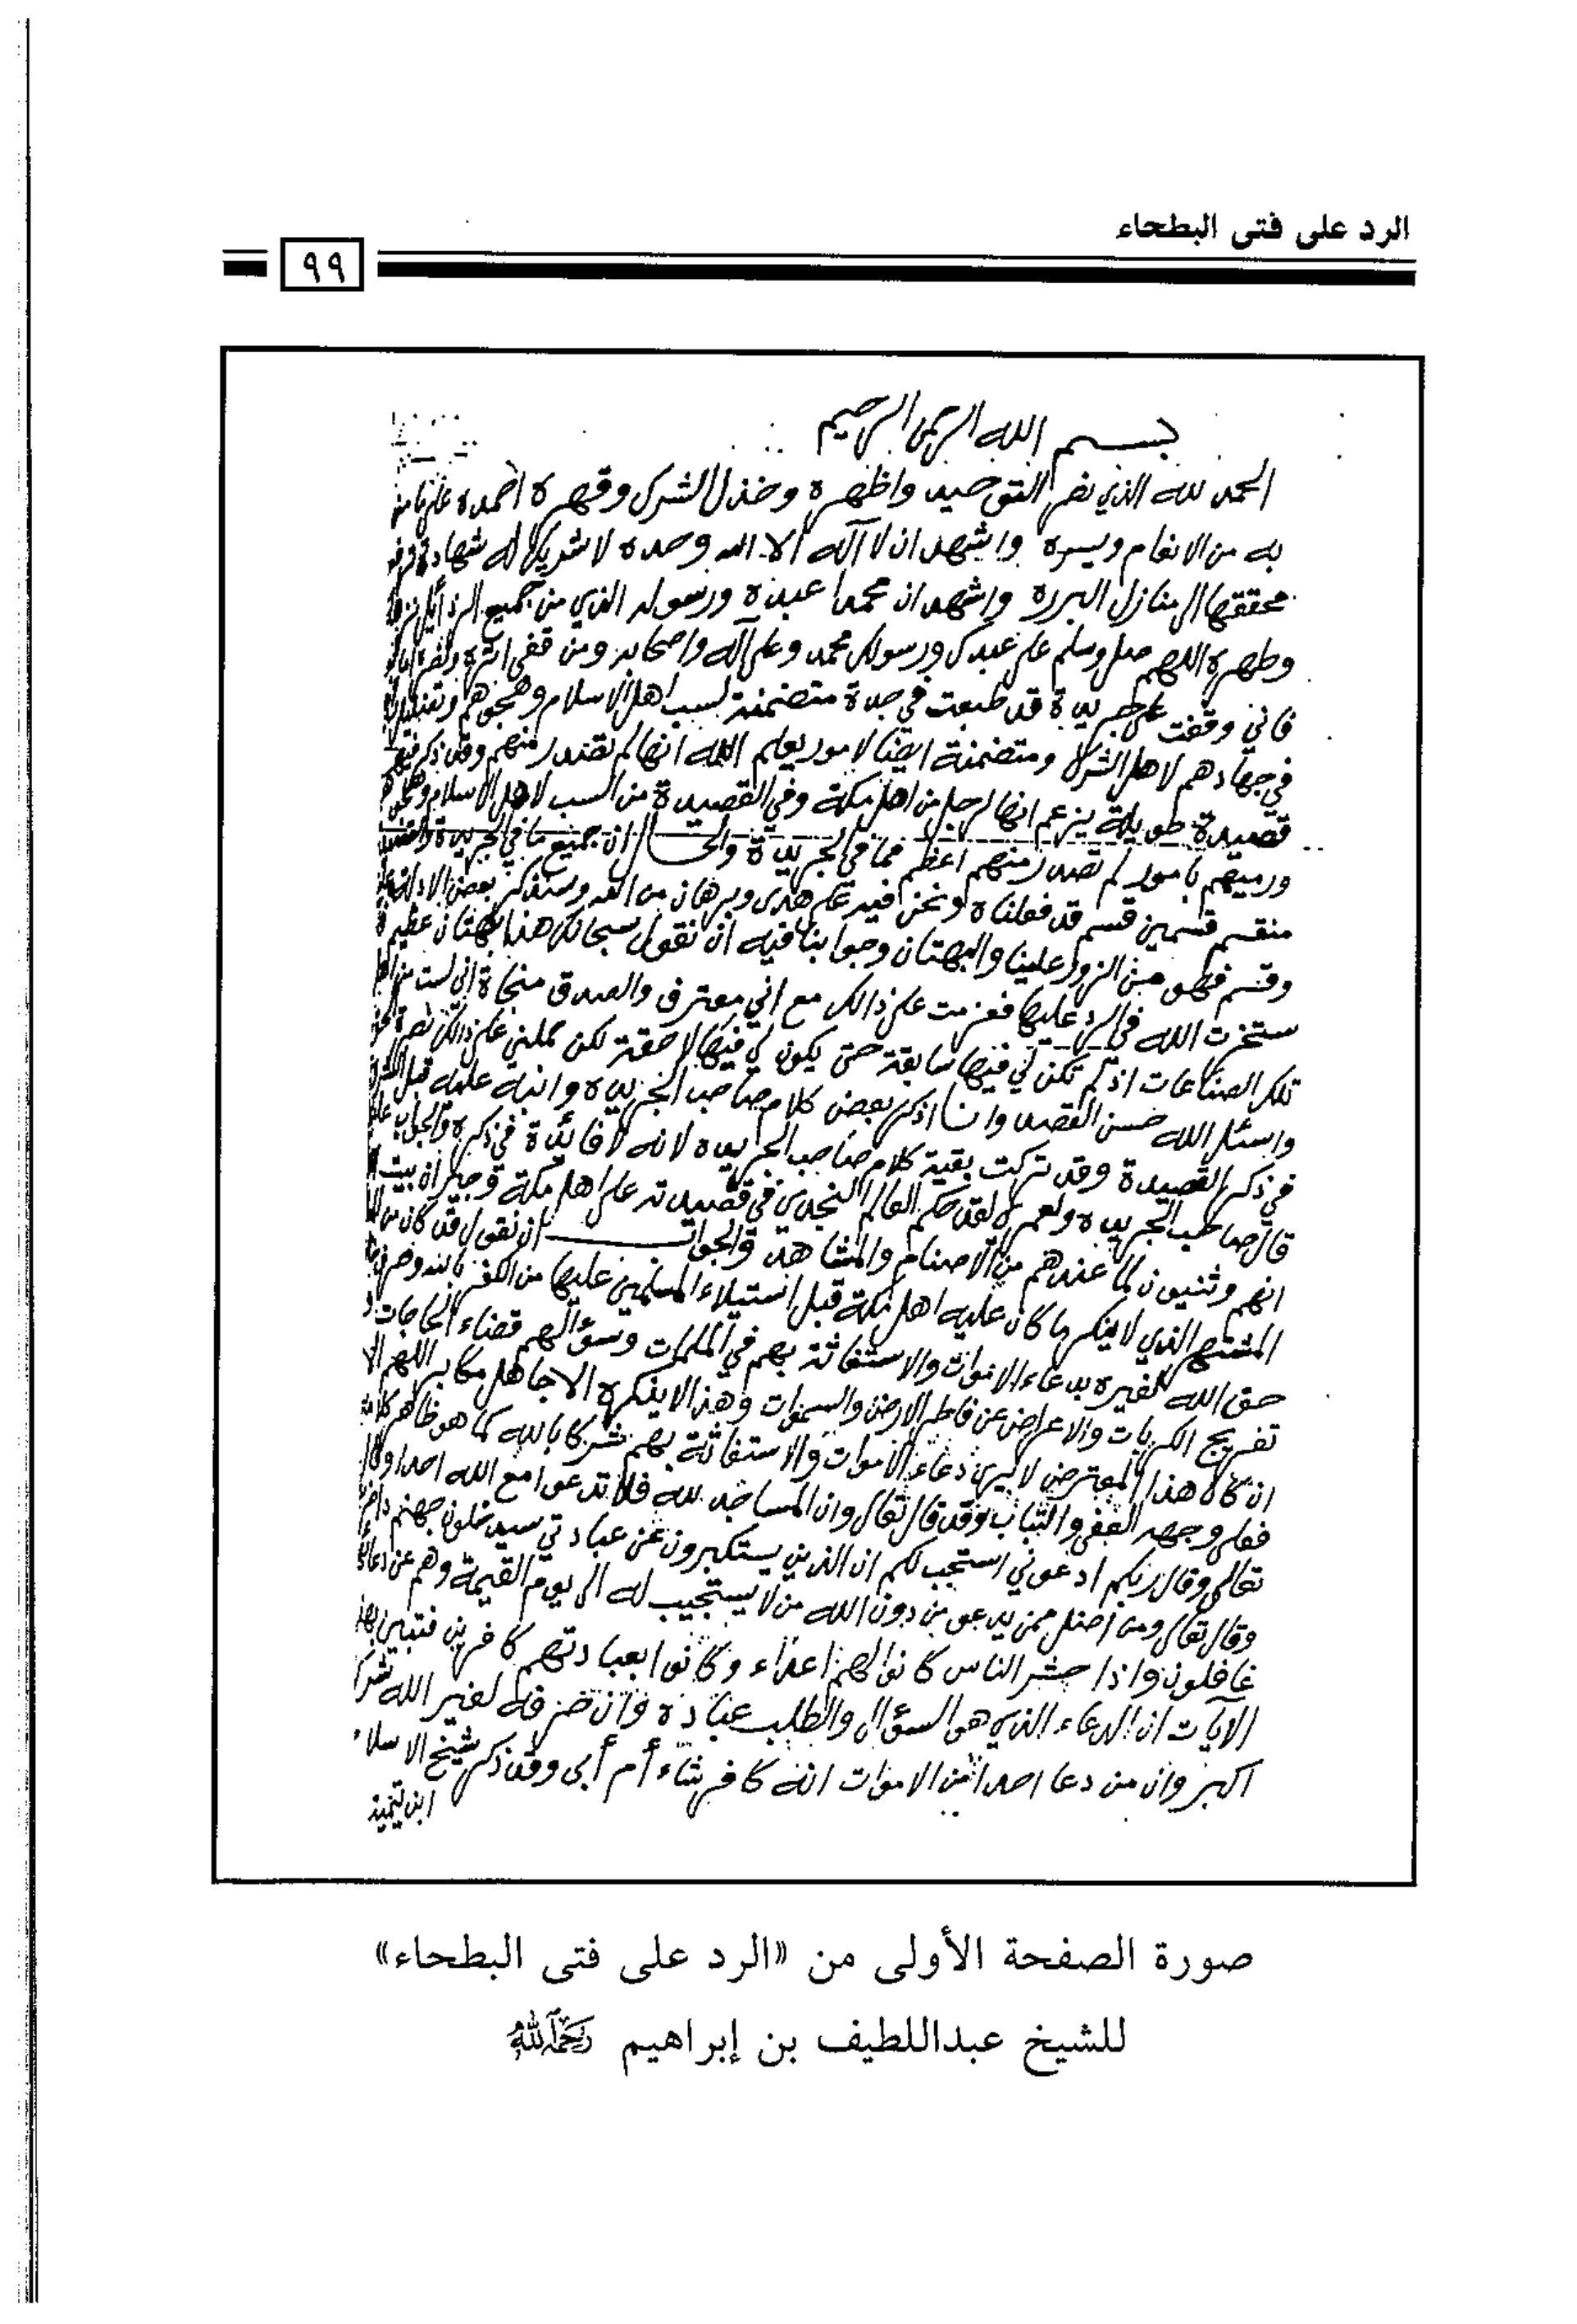 الرد على فتى البطحاء
٩٩
بسم الله الرحمن الرحيم
الحمد لله الذي نصر التوحيد واظهره وخذل الشرك وقهره احمده على ما من
به من الانعام ويسره واشهد ان لا آله الا الله وحده لا شريك له شهادة
محققها الى منازل البرره واشهد ان محمدا عبده ورسوله الذي من جميع الرذائل
وطهره اللهم صل وسلم على عبدك ورسولك محمد وعلى آله واصحابه ومن قفى اثره
فاني وقفت على جريدة قد طبعت في جدة متضمنة لسب اهل الاسلام وهجوهم
في جهادهم لاهل الشرك ومتضمنة ايضا لامور يعلم الله انها لم تصدر منهم وقد ذكر فيها
قصيدة طويلة يزعم انها لرجل من اهل مكة وفي القصيدة من السب لاهل الاسلام
ورميهم بامور لم تصدر منهم اعظم مما في الجريدة والحال ان جميع ما في الجريدة
منقسم قسمين قسم قد فعلناه ونحن فيه على هدى وبرهان من الله وسنذكر بعض الادلة
وقسم فهو من الزور علينا والبهتان وجوابنا فيه ان نقول سبحانك هذا بهتان عظيم
ستخرت الله في الرد عليها فعزمت على ذالك مع اني معترف والصدق منجاة اني لست من اهل
تلك الصناعات اذ لم تكن لي فيها سابقة حتى يكون لي فيها لاحقة لكن حملني على ذالك نصرة
واسئل الله حسن القصد وانا اذكر بعض كلام صاحب الجريده وانبه عليه قبل
في ذكر القصيدة وقد تركت بقية كلام صاحب الجريده لانه لا فائدة في ذكره والجواب
قال صاحب الجريده ولعمري لقد حكم العالم النجدي في قصيدته على اهل مكة وجيران بيت
انهم وثنيون لما عندهم من الاصنام والمشاهد والجواب ان نقول قد كان من
المشتهر الذي لا ينكر ما كان عليه اهل مكة قبل استيلاء المسلمين عليها من الكفر بالله وصرف
حق الله لغيره بدعاء الاموات والاستغاثة بهم في الملمات وسؤالهم قضاء الحاجات
تفريج الكربات والاعراض عن فاطر الارض والسموات وهذا لا ينكره الا جاهل مكابر اللهم الا
ان كان هذا المعترض لا يرى دعاء الاموات والاستغاثة بهم شركا بالله كما هو ظاهر كلامه
فعلى وجهه العفى والتباب وقد قال تعالى وان المساجد لله فلا تدعوا مع الله احدا وقال
تعالى وقال ربكم ادعوني استجب لكم ان الذين يستكبرون عن عبادتي سيدخلون جهنم
وقال تعالى ومن اضل ممن يدعو من دون الله من لا يستجيب له الى يوم القيمة وهم عن
غافلون واذا حشر الناس كانوا لهم اعداء وكانوا بعبادتهم كافرين فتبين
الآيات ان الدعاء الذي هو السؤال والطلب عبادة وان صرفه لغير الله شرك
اكبر وان من دعا احدا من الاموات انه كافر شاء أم أبى وقد ذكر شيخ الاسلام
ابن تيمية
صورة الصفحة الأولى من «الرد على فتى البطحاء»
للشيخ عبداللطيف بن إبراهيم رحمه الله